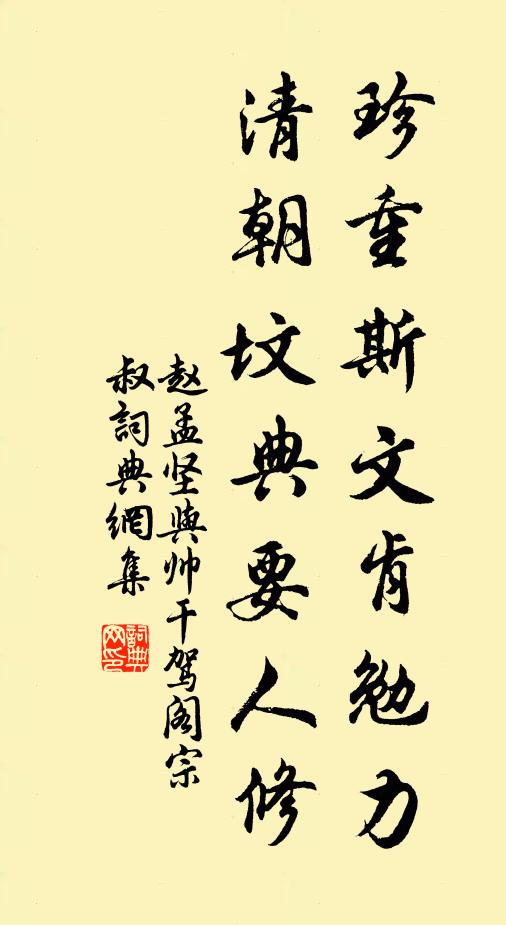 珍重斯文肯勉力
清朝坟典要人修
赵孟坚与帅干驾阁宗
叔詞典網集
詞典
网印